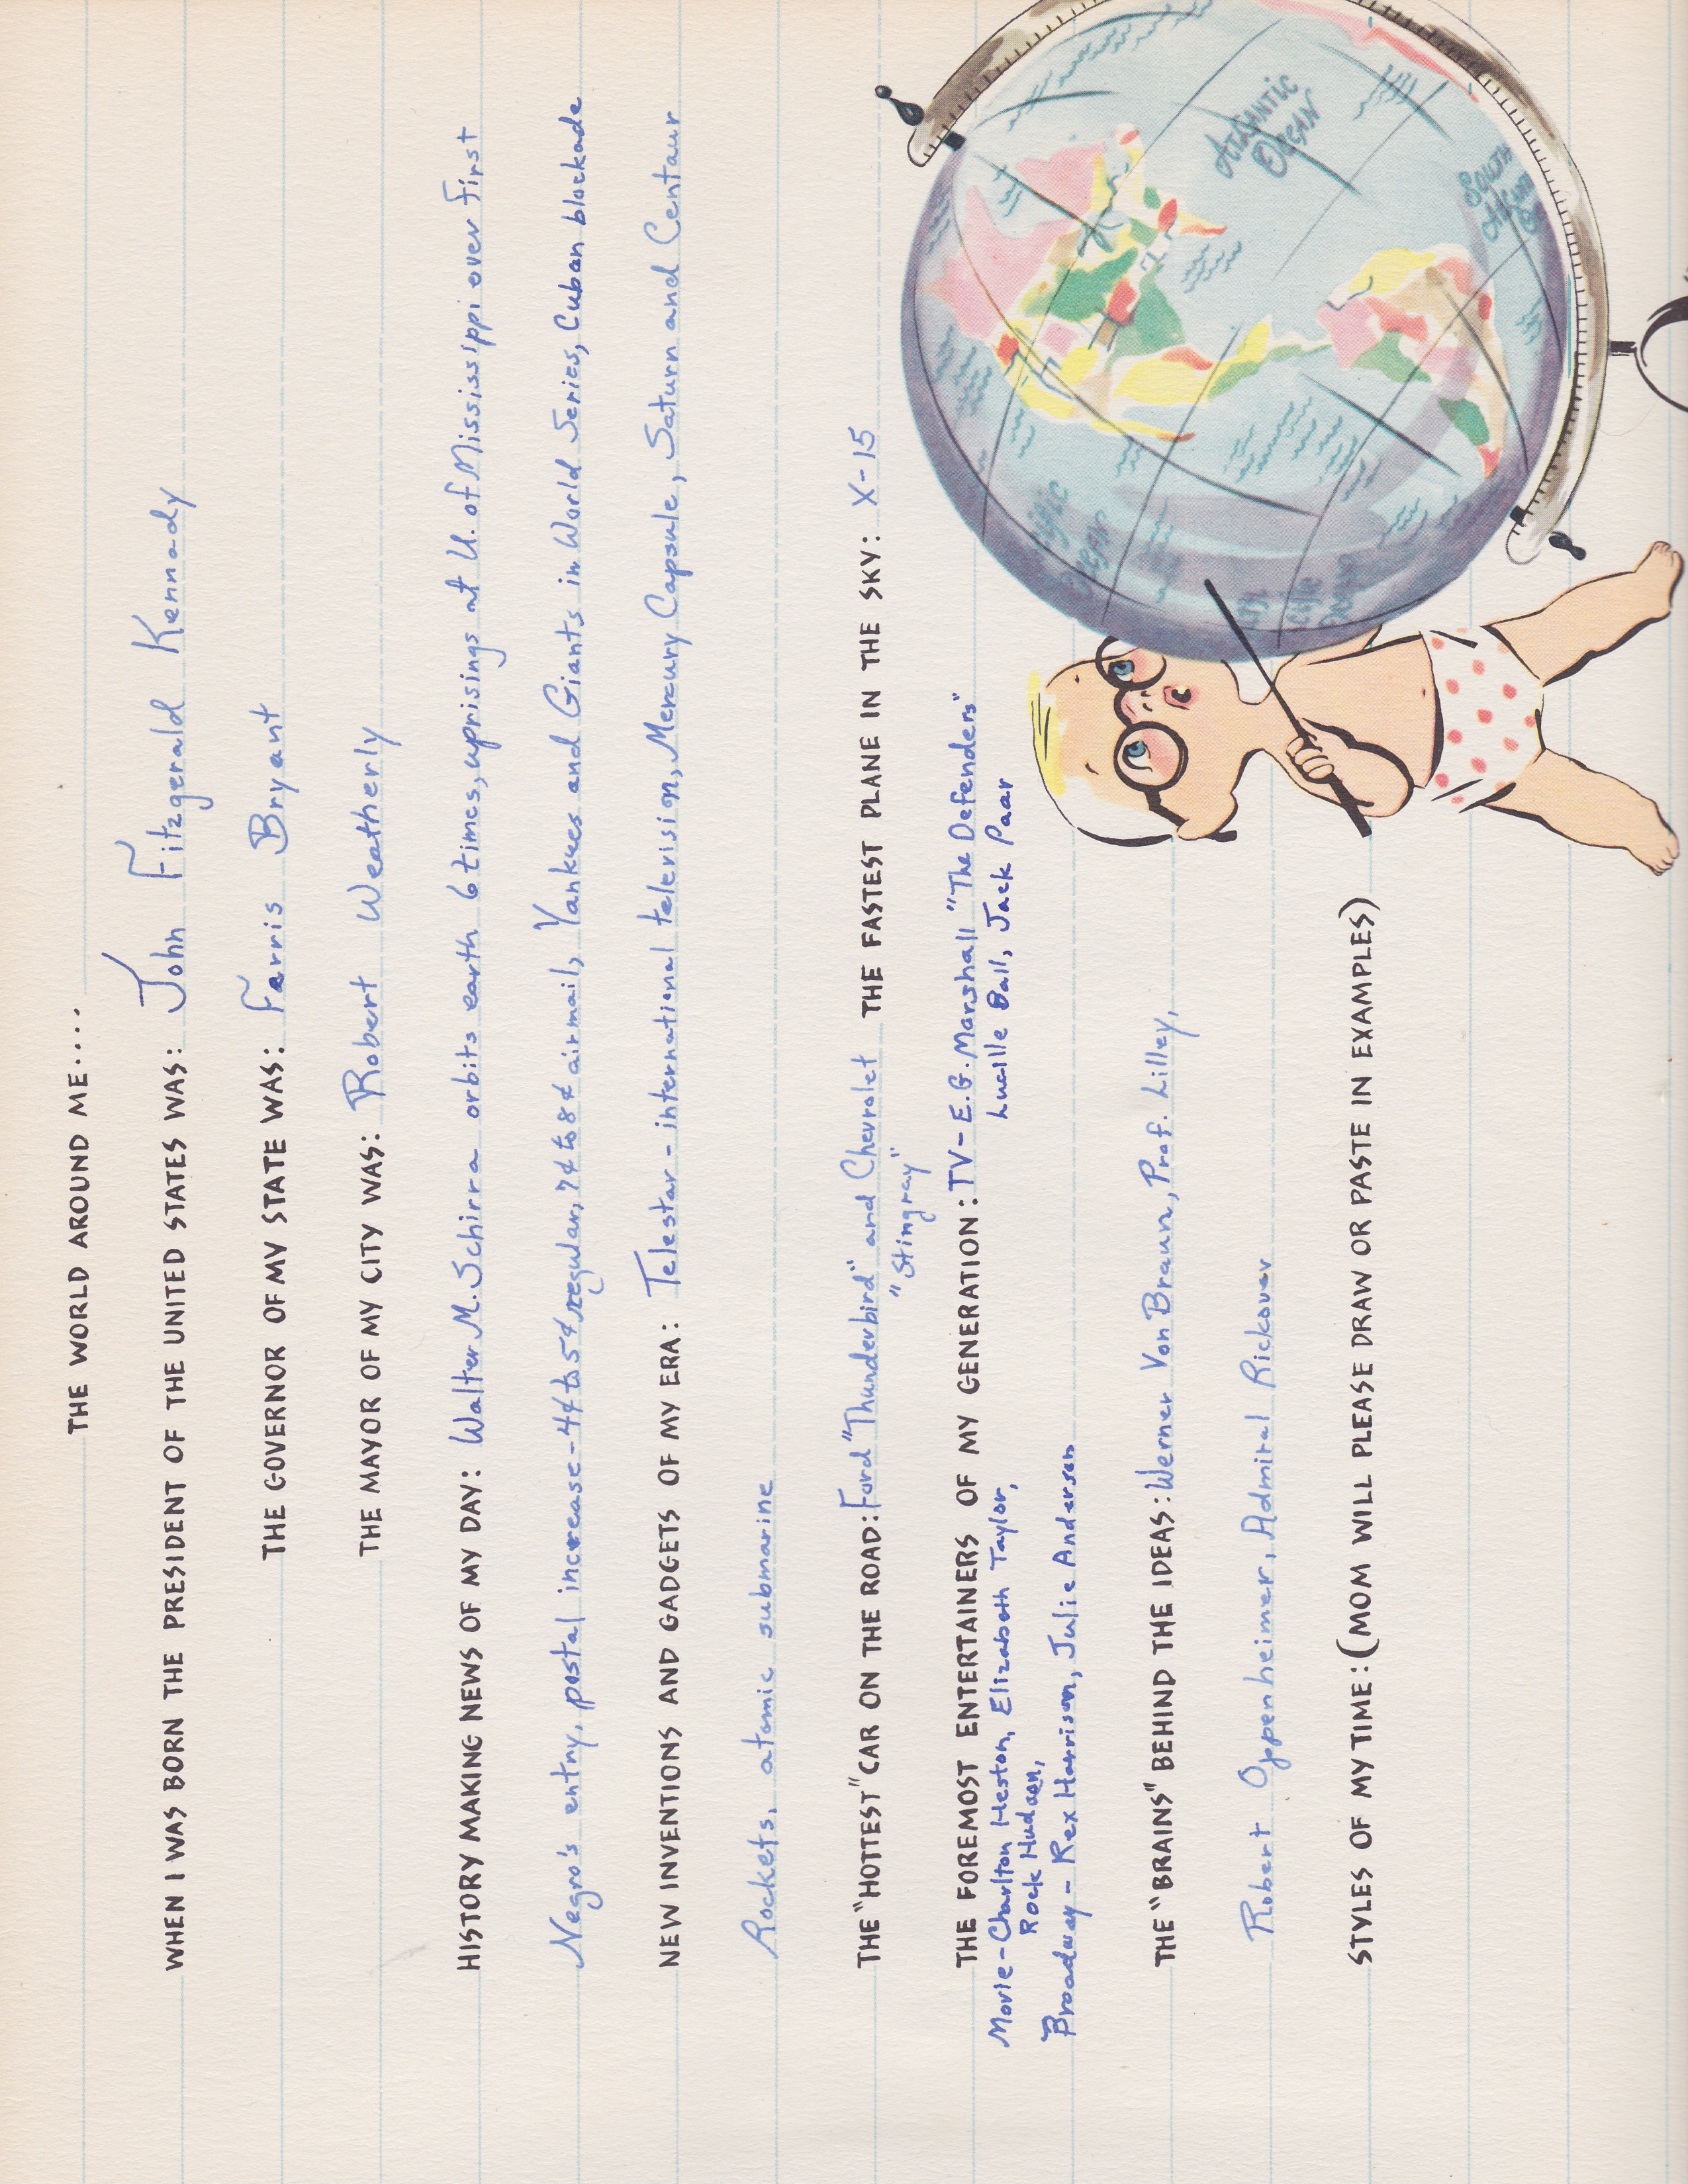 THE WORLD AROUND ME.....
WHEN I WAS BORN THE PRESIDENT OF THE UNITED STATES WAS: John Fitzgerald Kennady
THE GOVERNOR OF MY STATE WAS: Farris Bryant
THE MAYOR OF MY CITY WAS: Robert Weatherly
HISTORY MAKING NEWS OF MY DAY: Walter M. Schirra orbits earth 6 times, uprisings at U. of Mississippi over first
Negro's entry, postal increase - 4¢ to 5¢ regular, 7¢ to 8¢ airmail, Yankees and Giants in World Series, Cuban blockade
NEW INVENTIONS AND GADGETS OF MY ERA: Telestar - international television, Mercury Capsule, Saturn and Centaur
Rockets, atomic submarine
THE "HOTTEST" CAR ON THE ROAD: Ford "Thunderbird" and Chevrolet THE FASTEST PLANE IN THE SKY: X-15
"Stingray"
THE FOREMOST ENTERTAINERS OF MY GENERATION: TV - E.G. Marshall "The Defenders"
Lucille Ball, Jack Paar
Movie - Charlton Heston, Elizabeth Taylor,
Rock Hudson,
Broadway - Rex Harrison, Julie Anderson
THE "BRAINS" BEHIND THE IDEAS: Werner Von Braun, Prof. Lilley,
Robert Oppenheimer, Admiral Rickover
STYLES OF MY TIME: (MOM WILL PLEASE DRAW OR PASTE IN EXAMPLES)
ATLANTIC
OCEAN
SOUTH